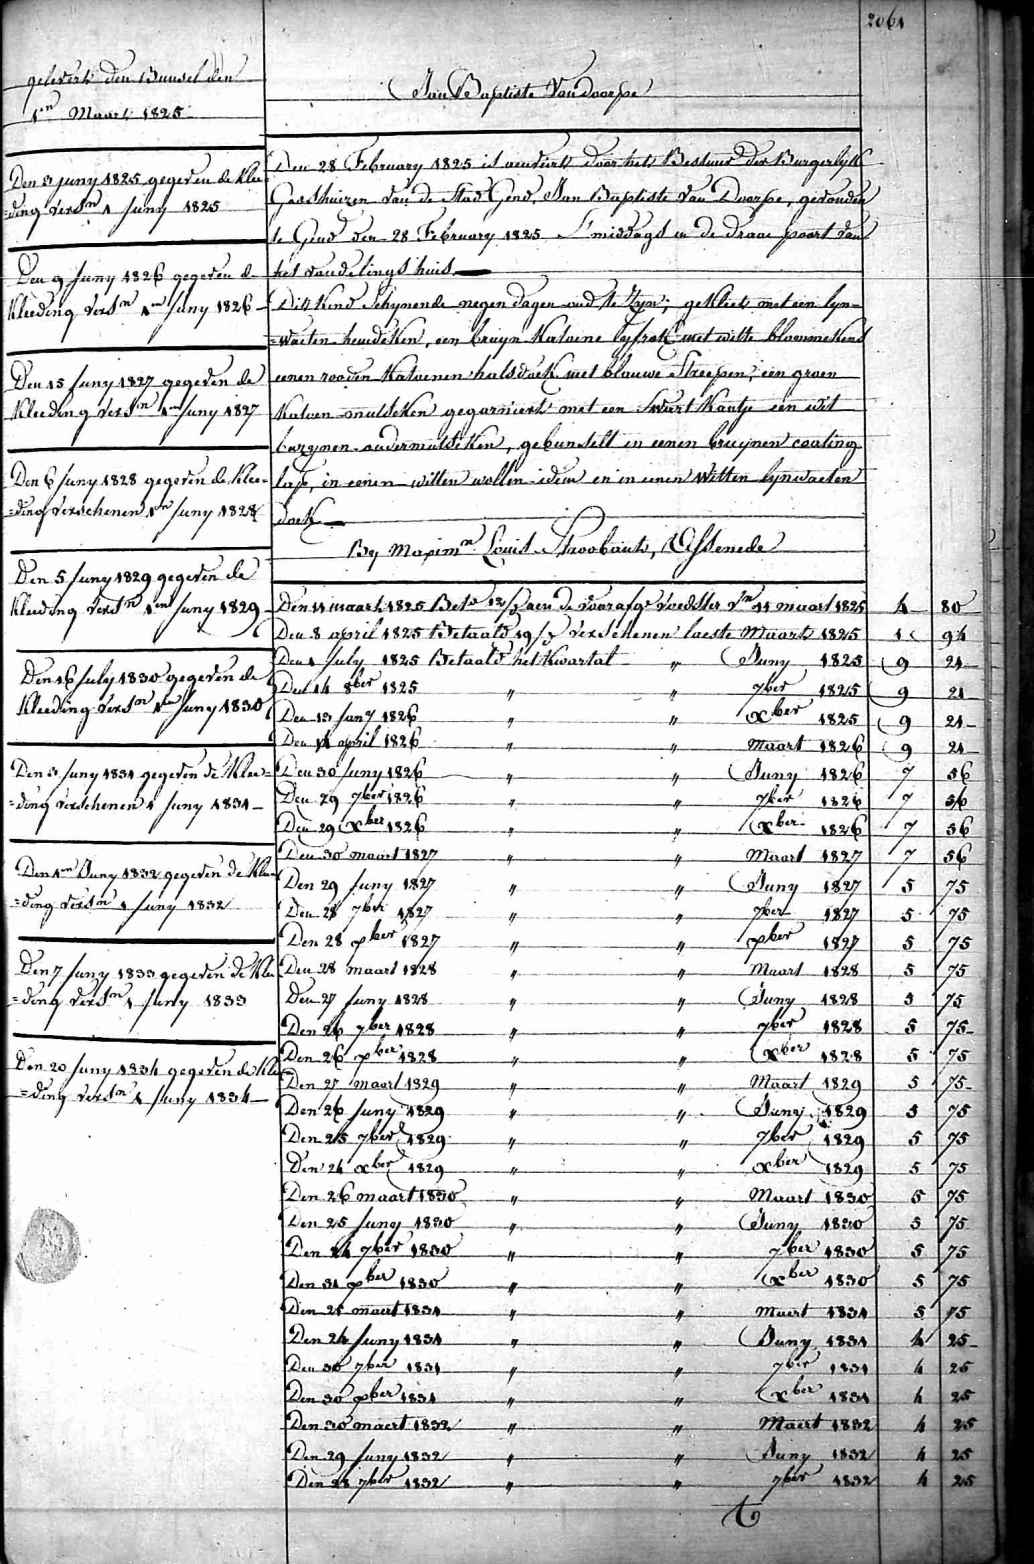 2061
gelevert den Bunsel den
1en Maart 1825
Den 3 juny 1825 gegeven de Klee-
=ding versn 1 Juny 1825
Den 9 Juny 1826 gegeven de
Kleeding versn 1en Juny 1826
Den 15 Juny 1827 gegeven de
Kleeding versn 1en Juny 1827
Den 6 Juny 1828 gegeven de Klee-
=ding verschenen 1en Juny 1828
Den 5 Juny 1829 gegeven de
Kleeding versn 1en Juny 1829
Den 16 July 1830 gegeven de
Kleeding versn 1en Juny 1830
Den 3 Juny 1831 gegeven de Klee=
=ding verschenen 1 Juny 1831
Den 1en Juny 1832 gegeven de Klee
=ding versn 1 Juny 1832
Den 7 Juny 1833 gegeven de Klee
=ding versn 1 Juny 1833
Den 20 Juny 1834 gegeven de Klee
=ding versn 1 Juny 1834
Jan Baptiste Van doorpe
Den 28 February 1825 is aenveirt door het Bestuur der Burgerlyke
Godshuizen van de Stad Gend, Jan Baptiste Van Doorpe, gevonden
te Gend den 28 February 1825 S'middags in de draai poort van
het vondelings huis
Dit kind schynende negen dagen oud te zyn; gekleet met een lyn-
=waeten hemdeken, een bruyn Katoene lyfrok met witte bloommekens
eenen rooden Katoenen halsdoek met blauwe Streepen, een groen
Katoen mutseken gegarniert met een Swart Kantje een wit
bazynen ondermutseken, gebunselt in eenen bruynen coating
lap, in eenen witten wollen idem en in eenen witten lynwaeten
doek
By Maximn Louis Stroobants, Assenede
Den 11 maart 1825 Betd 12/f aen de voorafge voedster vn 11 maart 1825 4 80
Den 8 april 1825 Betaald 19/f verschenen laeste Maart 1825 1 94
Den 1 July 1825 Betaald het Kwartal " Juny 1825 9 21
Den 14 8ber 1825 " " 7ber 1825 9 21
Den 13 Jany 1826 " " Xber 1825 9 21
Den 14 april 1826 " " Maart 1826 9 21
Den 30 Juny 1826 " " Juny 1826 7 56
Den 29 7ber 1826 " " 7ber 1826 7 56
Den 29 Xber 1826 " " Xber 1826 7 56
Den 30 maart 1827 " " Maart 1827 7 56
Den 29 Juny 1827 " " Juny 1827 5 75
Den 28 7ber 1827 " " 7ber 1827 5 75
Den 28 Xber 1827 " " Xber 1827 5 75
Den 28 maart 1828 " " Maart 1828 5 75
Den 27 Juny 1828 " " Juny 1828 5 75
Den 26 7ber 1828 " " 7ber 1828 5 75
Den 26 Xber 1828 " " Xber 1828 5 75
Den 27 maart 1829 " " Maart 1829 5 75
Den 26 Juny 1829 " " Juny 1829 5 75
Den 25 7ber 1829 " " 7ber 1829 5 75
Den 24 Xber 1829 " " Xber 1829 5 75
Den 26 maart 1830 " " Maart 1830 5 75
Den 25 Juny 1830 " " Juny 1830 5 75
Den 24 7ber 1830 " " 7ber 1830 5 75
Den 31 Xber 1830 " " Xber 1830 5 75
Den 25 maert 1831 " " Maert 1831 5 75
Den 24 Juny 1831 " " Juny 1831 4 25
Den 30 7ber 1831 " " 7ber 1831 4 25
Den 30 Xber 1831 " " Xber 1831 4 25
Den 30 maert 1832 " " Maert 1832 4 25
Den 29 Juny 1832 " " Juny 1832 4 25
Den 28 7ber 1832 " " 7ber 1832 4 25